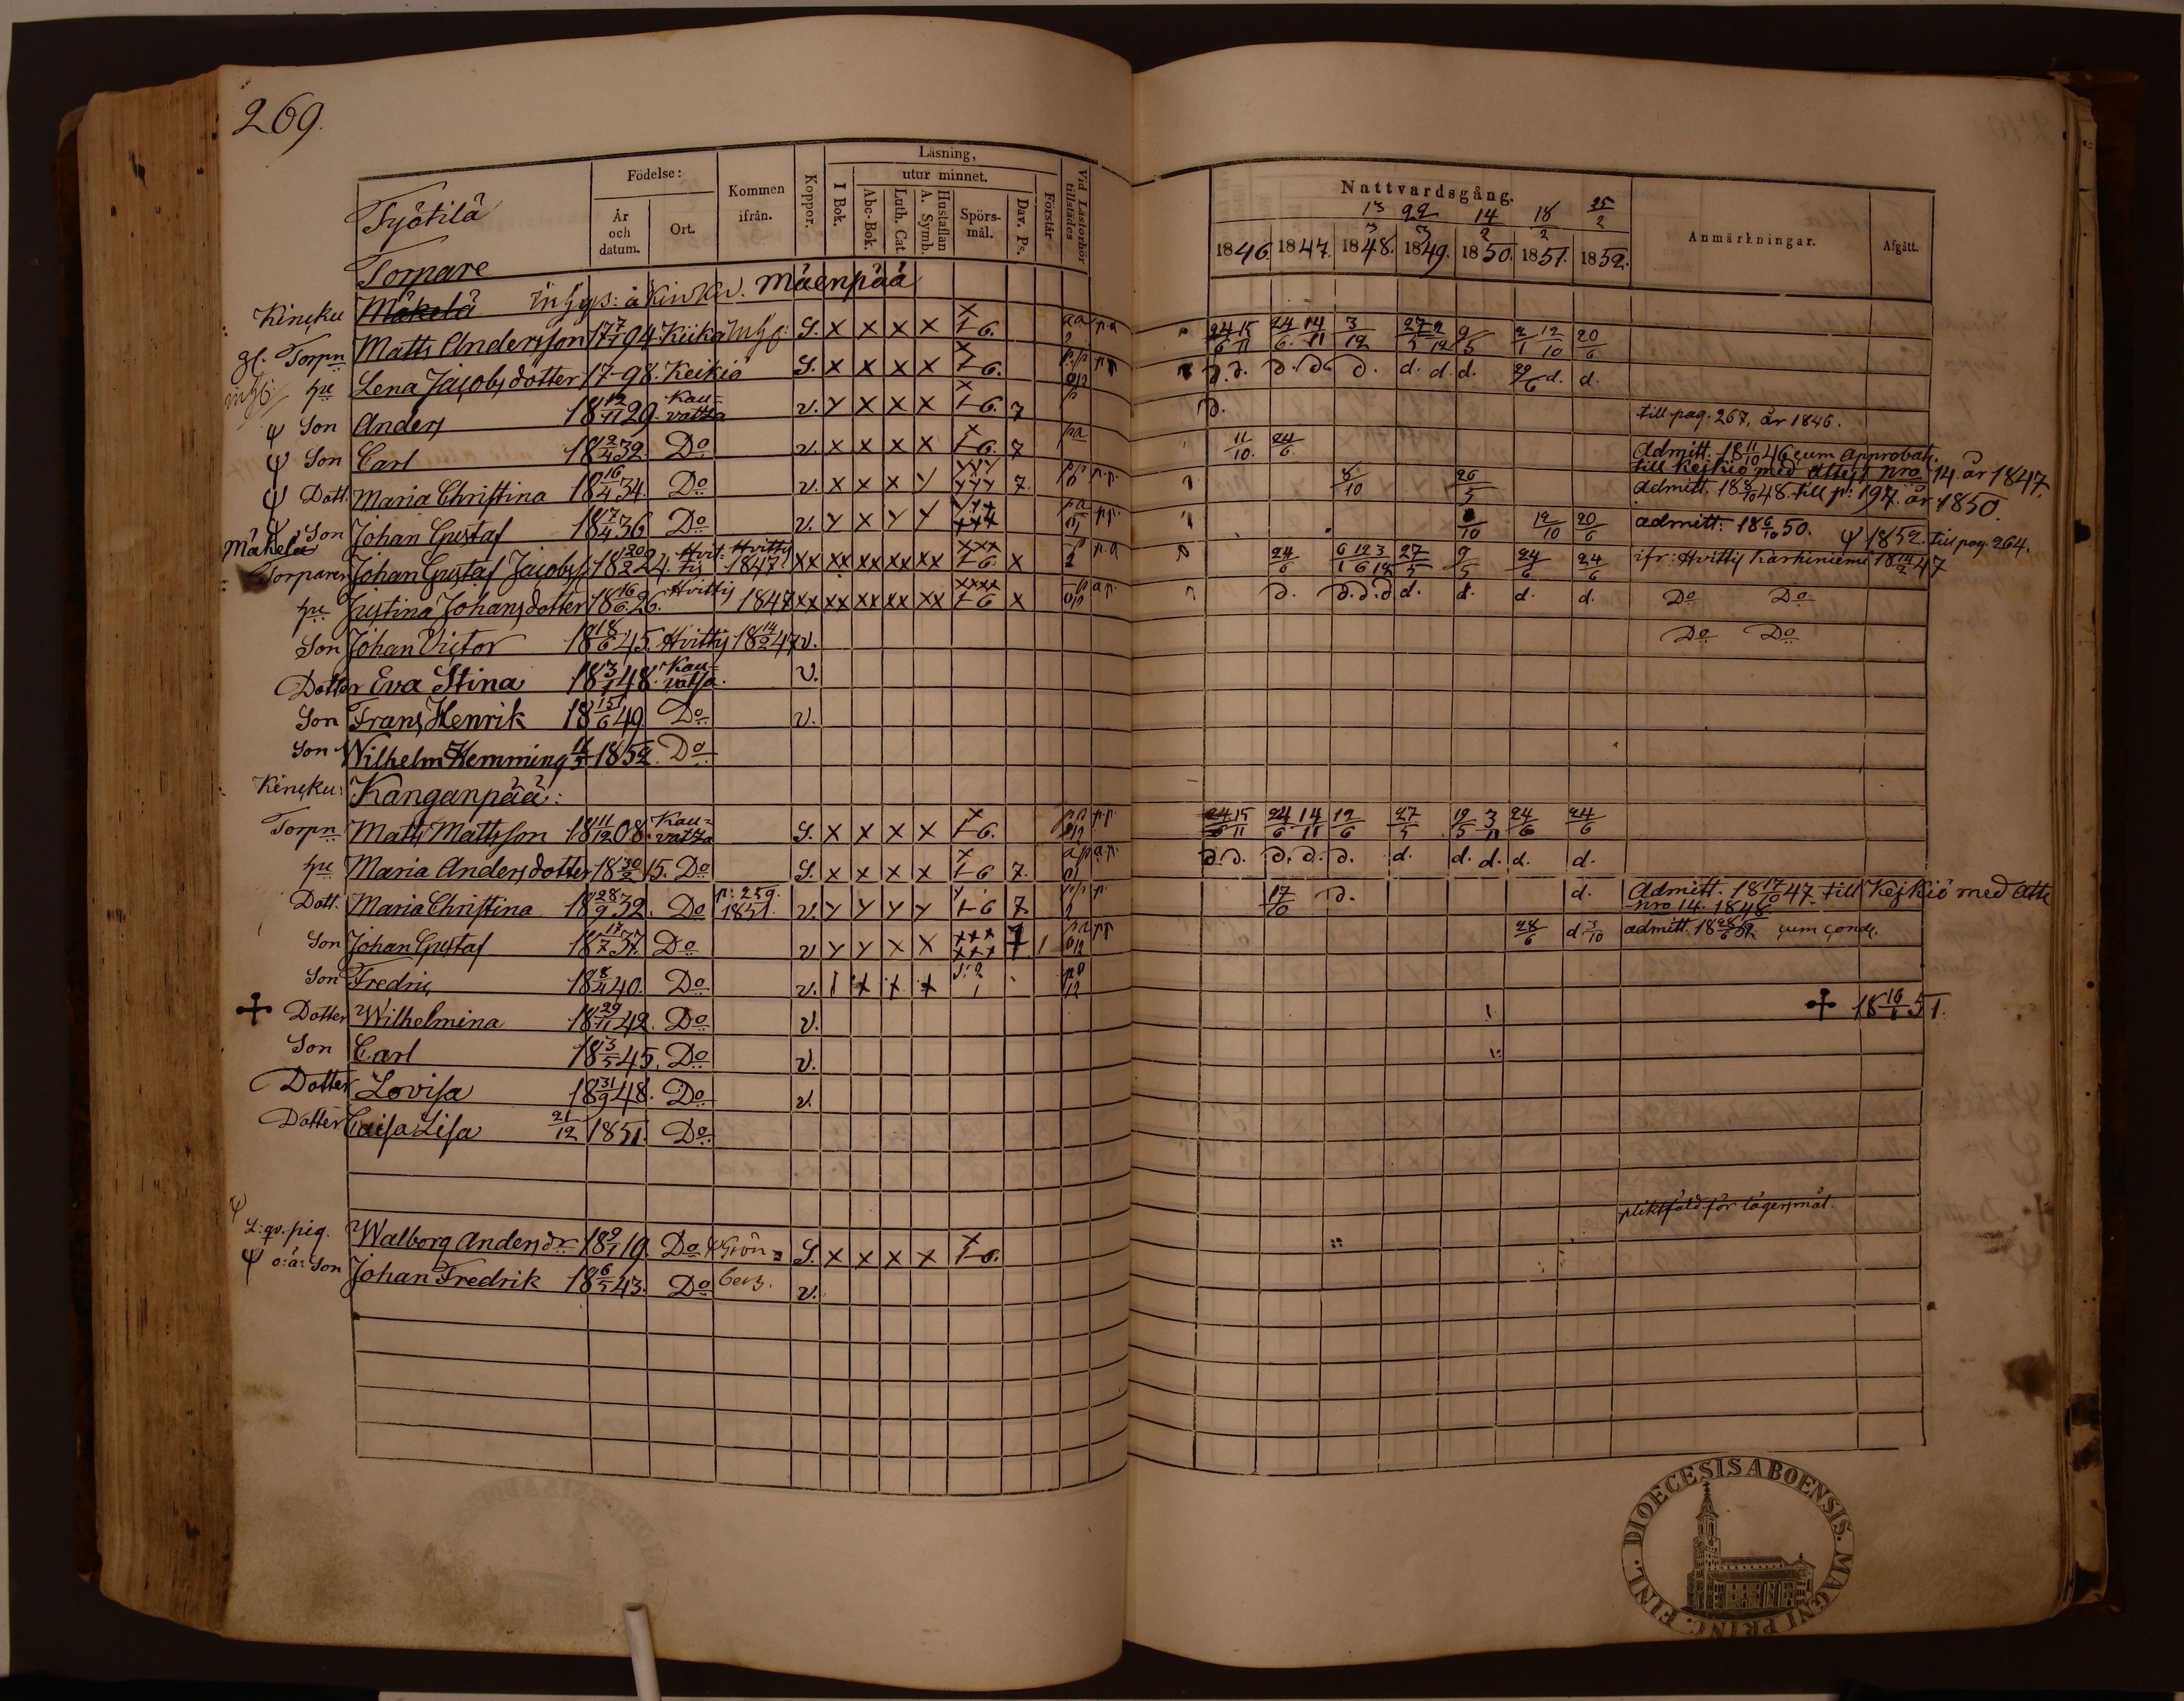 269.
Födelse: Kommen ifrån. Koppor. Läsning, I Bok. utur minnet. Abc-Bok. Luth. Cat. Hustaflan A. Symb. Spörsmål. Dav. Ps. Förstår Vid Läsförhör tillstädes
År och datum. Ort.
Nattvardsgång. Anmärkningar. Afgått.
13/3 22/3 14/2 18/2 25/2
1846. 1847. 1848. 1849. 1850. 1851. 1852.
Työtilä
Torpare
Mäkelä Mäenpää
Torpn Matts Andersson 17 7/7 94. Keikiö S. x x x x 1-6. 24/6 15/11 24/6 14/11 3/12 27/5 2/12 9/5 2/1 12/10 20/6
hu Lena Jacobsdotter 17-98. Keikiö S. x x x x 1-6. d. d. d. d. d. d. d. d. 29/6 d. d.
ψ Son Anders 18 12/11 29. Kauvatza v. x x x x 1-6. 7 d. till pag. 267, år 1846.
ψ Son Carl 18 2/4 32. Do v. x x x x 1-6. 7 11/10. 24/6. Admitt. 18 11/10 46 cum Approbat.
till Kejkiö med attest nro 14. år 1847.
ψ Dott. Maria Christina 18 16/4 34. Do v. x x x y 7. 8/10 26/5 admitt. 18 8/10 48. till p: 197. år 1850.
ψ Son Johan Gustaf 18 17/4 36 Do v. 12/10 20/6 admitt: 18 6/10 50. ψ 1852. till pag. 264.
Mäkelä
Torparen Johan Gustaf Jacobss. 18 20/2 24. Hvittis Hvittis 1847 xx xx xx xx xx 1-6. x 24/6 6/1 12/6 3/12 27/5 9/5 24/6 24/6 ifr: Hvittis Karhiniemi 18 14/2 47
hu Justina Johansdotter 18 16/6 26. Hvittis 1847 xx xx xx xx xx 1-6 x d. d. d. d. d. d. d. d. Do Do
Son Johan Victor 18 18/6 45. Hvittis 18 14/2 47 v. Do Do
Dotter Eva Stina 18 3/1 48. Kauvatsa. v.
Son Frans Henrik 18 15/6 49. Do v.
Son Wilhelm Hemming 1852. Do
Kanganpää:
Torpn Matts Mattsson 18 11/12 08. Kauvatza S. x x x x 1-6. 24/6 15/11 24/6 14/11 12/6 27/5 12/5 3/11 24/6 24/6
hu Maria Andersdotter 18 30/2 15. Do S. x x x x 1-6 7. d. d. d. d. d. d. d. d. d. d.
Dott. Maria Christina 18 28/9 32. Do p: 259. 1851. v. y y y y 1-6 7. 17/10 d. d. Admitt. 18 17/10 47. till Kejkiö med atte
nro 14. 1848.
Son Johan Gustaf 18 17/7 37. Do v y y x x 28/6 d. 3/10 admitt. 18 28/6 51. cum cond.
Son Fredric 18 8/4 40. Do v.
✢ Dotter Wilhelmina 18 29/11 42. Do v. ✢ 18 16/1 51.
Son Carl 18 3/5 45. Do v.
Dotter Lovisa 18 31/9 48. Do v.
Dotter Caisa Lisa 21/12 1851. Do
ψ
L: qv. pig. Walborg Andersdr 18 9/1 19. Do Grön= S. x x x x 1-6. pliktfäld för lägersmål.
ψ o: ä: Son Johan Fredrik 18 6/5 43. Do berg. v.
FINL. DIOECESIS ABOENSIS. MAGNI PRINC.